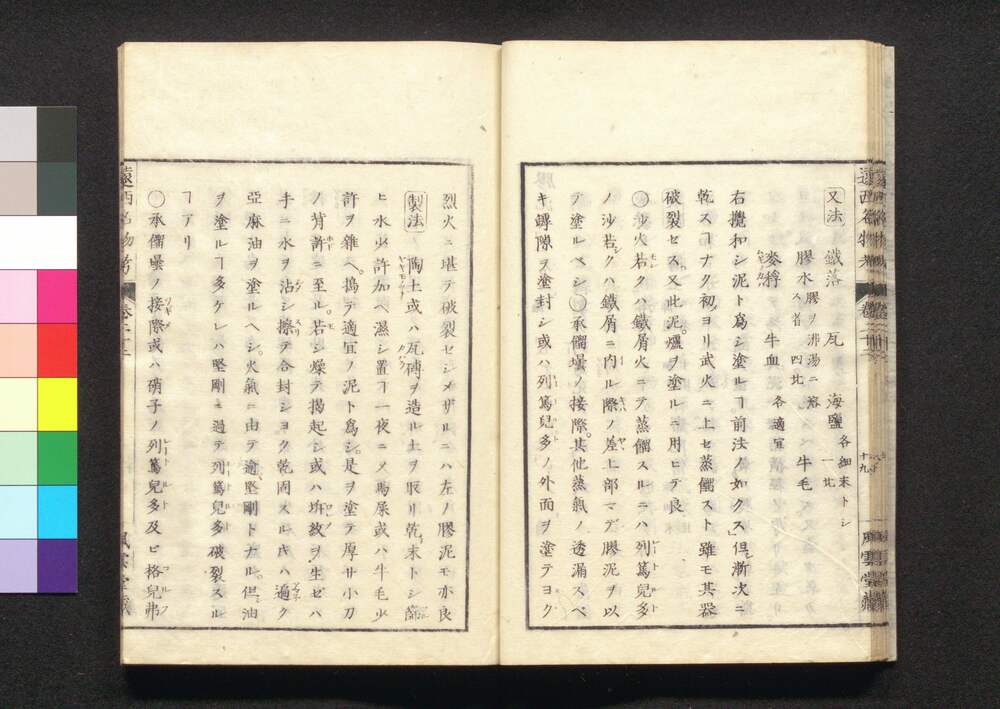 又法 鐵落 瓦 海鹽 各細末トシ一比
膠水 膠ヲ沸湯ニ溶ス者四比 牛毛
麥稃 牛血 各適宜
右攪和シ泥ト爲シ塗ルヿ前法ノ如クス但シ漸次ニ
乾スヿナク初ヨリ武火ニ上セ蒸餾スト雖モ其器
破裂セス又此泥爐ヲ塗ルニ用ヒテ良
○沙火若クハ鐵屑火ニテ蒸餾スルニハ列篤兒多
ノ沙若クハ鐵屑ニ内ルノ際ノ差上部マデ膠泥ヲ以
テ塗ルベシ○承餾壜ノ接際其他蒸氣ノ透漏スベ
キ罅隙ヲ塗封シ或ハ列篤兒多ノ外面ヲ塗テヨク
烈火ニ堪テ破裂セシメザルニハ左ノ膠泥モ亦良
製法 陶土或ハ瓦磚ヲ造ル土ヲ取リ乾末トシ篩
ヒ水少許加ヘ濕シ置ヿ一夜ニメ馬屎或ハ牛毛少
許ヲ雜ヘ搗テ適宜ノ泥ト爲シ是ヲ塗テ厚サ小刀
ノ背許ニ至ル若シ燥テ揭起シ或ハ坼紋ヲ生セハ
手ニ水ヲ沾シ擦テ合封シヨク乾固スルキハ遍ク
亞麻油ヲ塗ルヘシ火氣ニ由テ逾堅剛トナル但油
ヲ塗ルヿ多ケレハ堅剛ニ過テ列篤兒多破裂スル
ヿアリ
○承餾壜ノ接際或ハ硝子ノ列篤兒多及ヒ格兒弗
十九
風雲堂藏